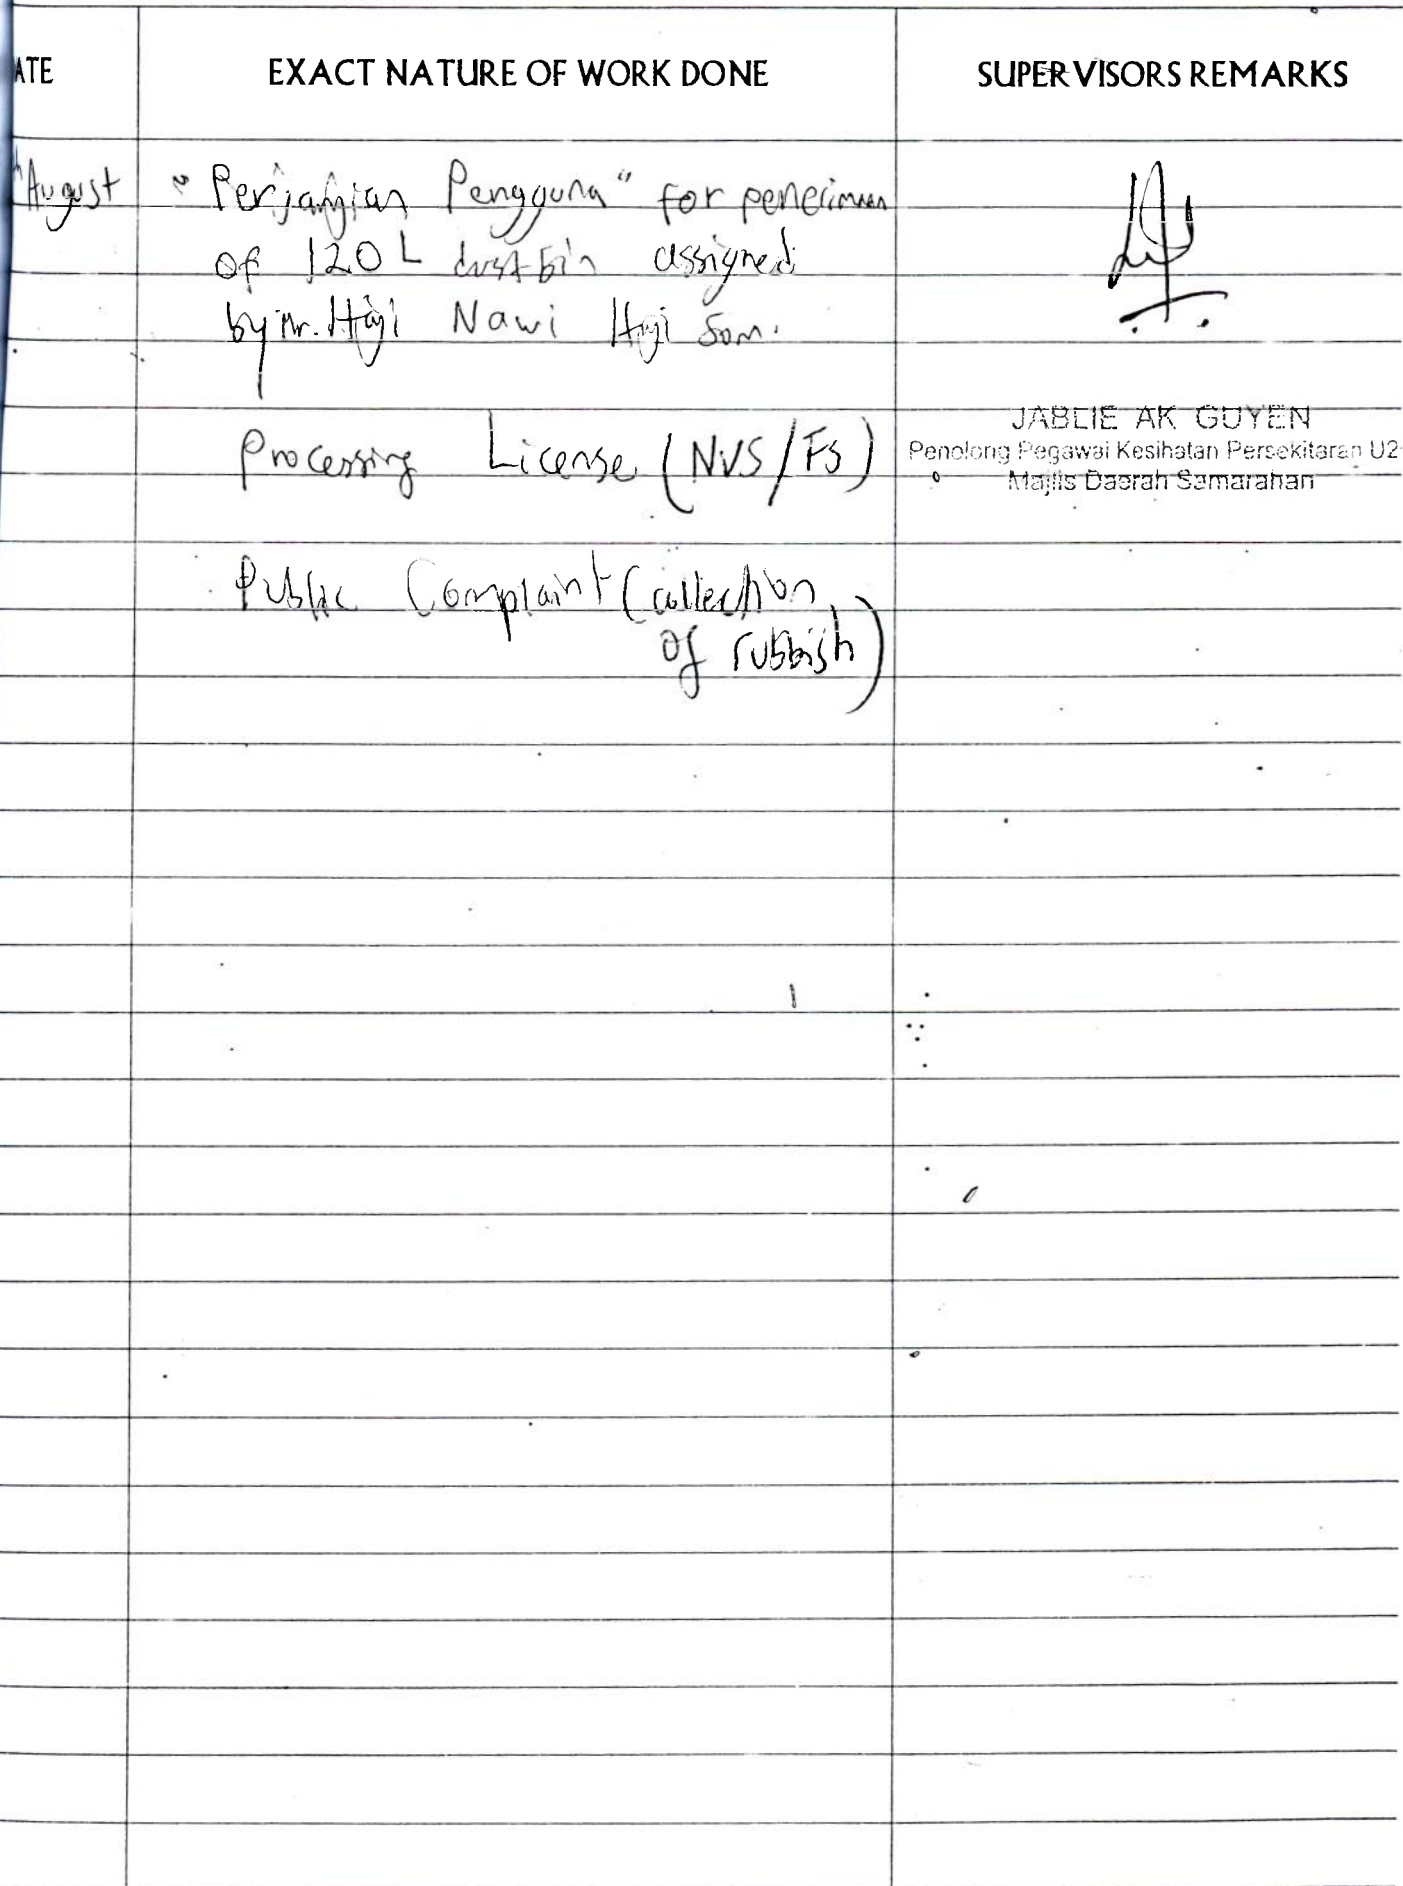 ATE EXACT NATURE OF WORK DONE SUPERVISORS REMARKS
August "Perjanjian Pengguna" for penerimaan
of 120 L dustbin assigned
by Mr. Haji Nawi Haji Som.
Processing License (NVS/FS)
JABLIE AK GUYEN
Penolong Pegawai Kesihatan Persekitaran U2
Majlis Daerah Samarahan
Public Complaint (collection
of rubbish)